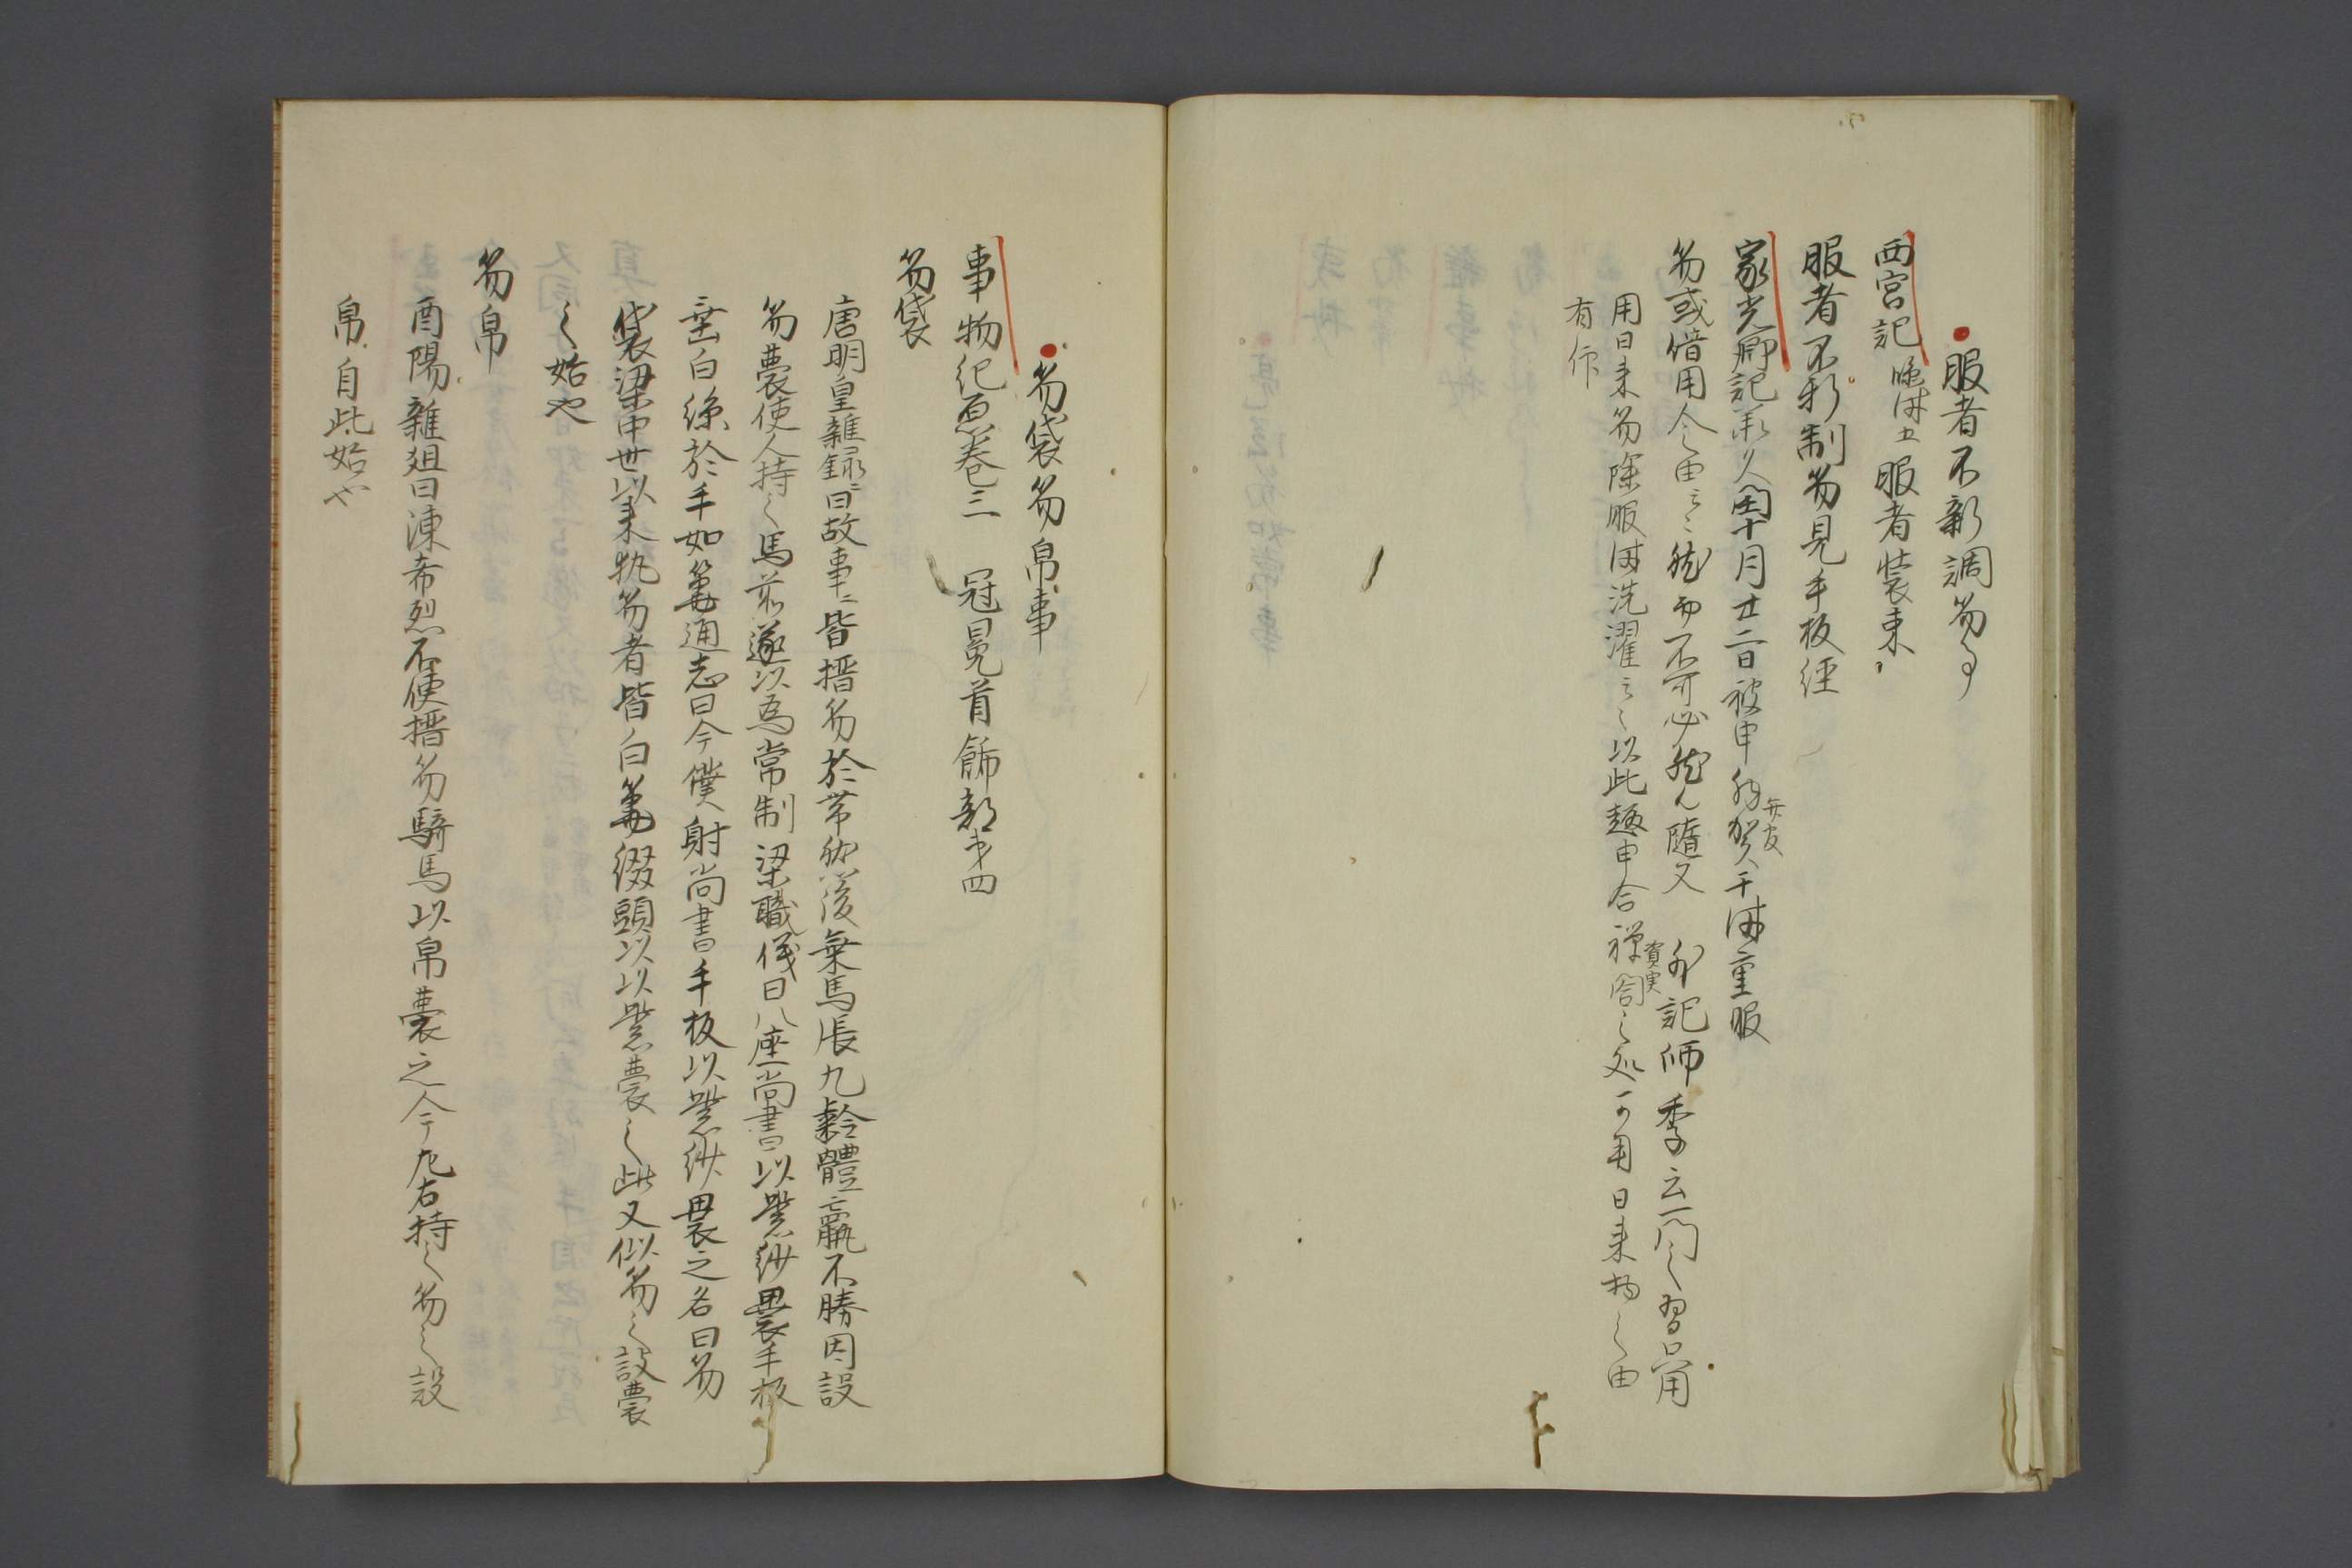 服者不新調笏事
西宮記 臨時五 服者装束
服者不新制笏見手板經
家光卿記承久閏十月廿二日被申 賀 重服
笏或借用令之由云々然而不可必然隨又 外記師季云閣之習只用
用日来笏除服時洗濯云々以此趣申合禅閤資実之処可用日来物之由
有仰
笏袋笏帛事
事物纪原卷三 冠冕首飾部第四
笏袋
唐明皇雜録曰故事皆搢笏於帯然後乗馬張九齡體羸不勝因設
笏囊使人持之馬前遂以為常制梁職儀曰八座尚書以紫紗裹手板
垂白絲於手如筆通志曰今僕射尚書手板以紫紗裹之名曰笏
袋梁中世以来執笏者皆白筆綴頭以以紫囊之此又似笏之設囊
之始也
笏帛
酉陽雜俎曰陳希烈不便搢笏騎馬以帛裹之令左右持之笏之設
帛自此始也